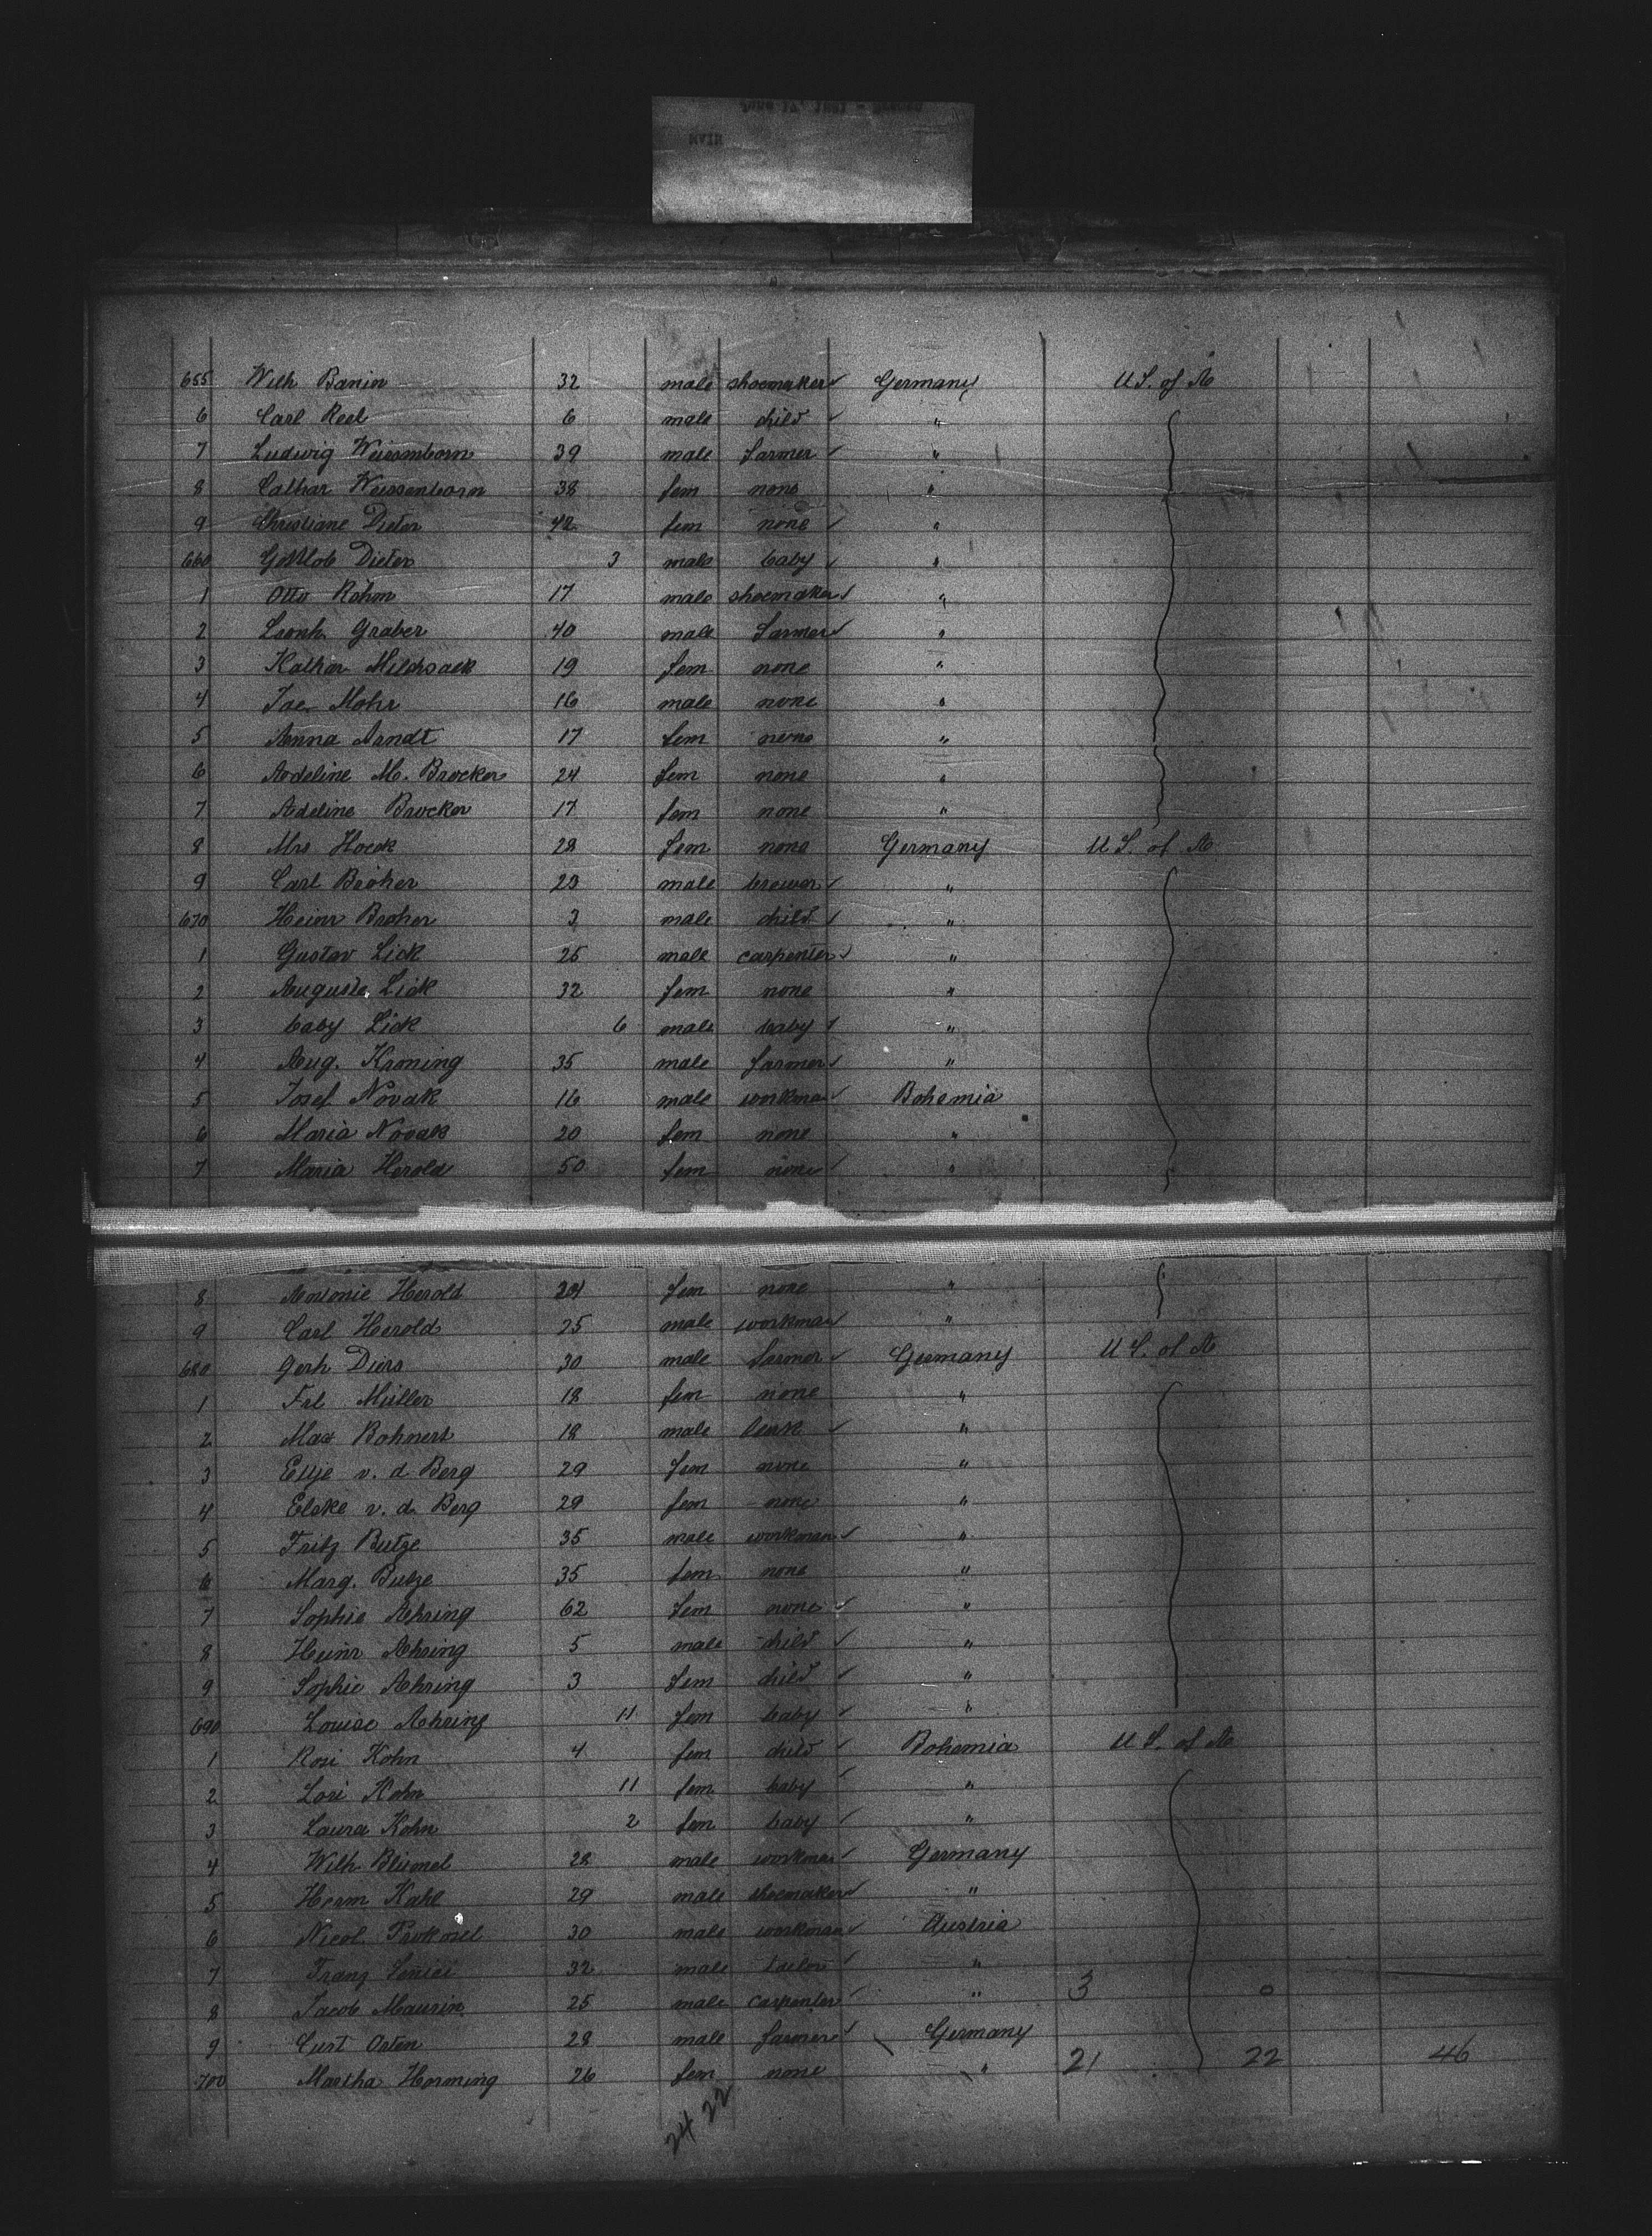 655 Wilh Banin 32 male shoemaker Germany U S. of A
6 Carl Reel 6 male child "
7 Ludwig Weissenborn 39 male farmer "
8 Cathar Weissenborn 38 fem none "
9 Christiane Dieter 42 fem none "
660 Gottlob Dieter 3 male baby "
1 Otto Röhm 17 male shoemaker "
2 Leonh. Graber 40 male farmer "
3 Kathar Milchsack 19 fem none "
4 Jac Mohr 16 male none "
5 Anna Arndt 17 fem none "
6 Adeline M. Brocker 24 fem none "
7 Adeline Brocker 17 fem none "
8 Mrs Hoeck 28 fem none Germany U S. of A
9 Carl Broher 23 male brewer "
670 Heinr Broher 3 male child "
1 Gustav Lick 25 male carpenter "
2 Auguste Lick 32 fem none "
3 baby Lick 6 male baby "
4 Aug. Kroning 35 male farmer "
5 Josef Novak 16 male workman Bohemia
6 Maria Novak 20 fem none "
7 Maria Herold 50 fem none "
8 Antonie Herold 24 fem none "
9 Carl Herold 25 male workman "
680 Gerh Diers 30 male farmer Germany U S. of A
1 Frl Müller 18 fem none "
2 Max Bohnert 18 male clerk "
3 Eltje v. d. Berg 29 fem none "
4 Elske v. d. Berg 29 fem none "
5 Fritz Butze 35 male workman "
6 Marg. Butze 35 fem none "
7 Sophie Aehring 62 fem none "
8 Heinr Aehring 5 male child "
9 Sophie Aehring 3 fem child "
690 Louise Aehring 11 fem baby "
1 Rosi Kohn 4 fem child Bohemia U S. of A
2 Lori Kohn 11 fem baby "
3 Laura Kohn 2 fem baby "
4 Wilh. Blümel 28 male workman Germany
5 Herm Kahl 29 male shoemaker "
6 Nicol. 30 male workman Austria
7 Franz 32 male tailor "
8 Jacob Maurin 25 male carpenter " 3 0
9 Curt Osten 28 male farmer Germany
700 Martha Horming 26 fem none " 21 22 46
24 22